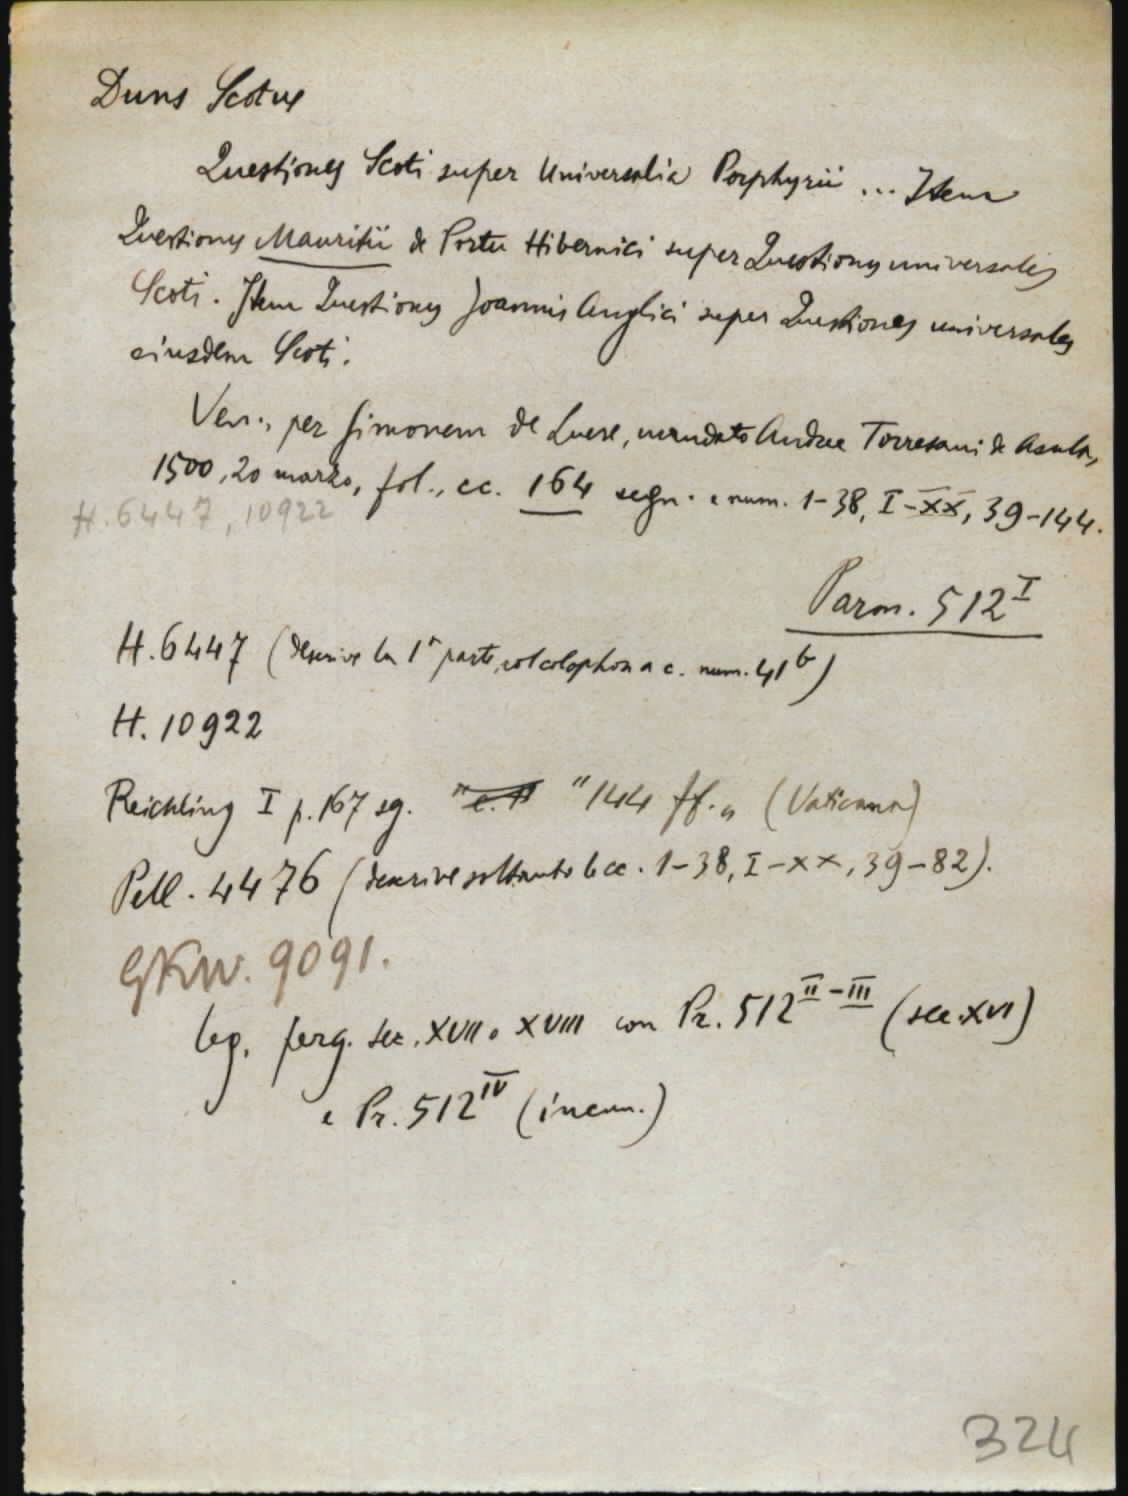 Duns Scotus
Questiones Scoti super Universalia Porphyrii ... Item
Questiones Mauritii de Portu Hibernici super Questiones universales
Scoti. Item Questiones Joannis Anglici super Questiones universales
eiusdem Scoti.
Ven., per Simonem de Luere, mandato Andree Torresani de Asula,
1500, 20 marzo, fol., cc. 164 segn. e num. 1-38, I-XX, 39-144.
H. 6447, 10922
Parm. 512 I
H. 6447 (descrive la 1ª parte, col colophon a c. num. 41 b)
H. 10922
Reichling I p. 167 sg. "144 ff.„ (Vaticana)
Pell. 4476 (descrive soltanto le cc. 1-38, I-XX, 39-82).
GKW. 9091.
leg. perg. sec. XVII o XVIII con Pr. 512 II-III (sec. XVI)
e Pr. 512 IV (incun.)
324